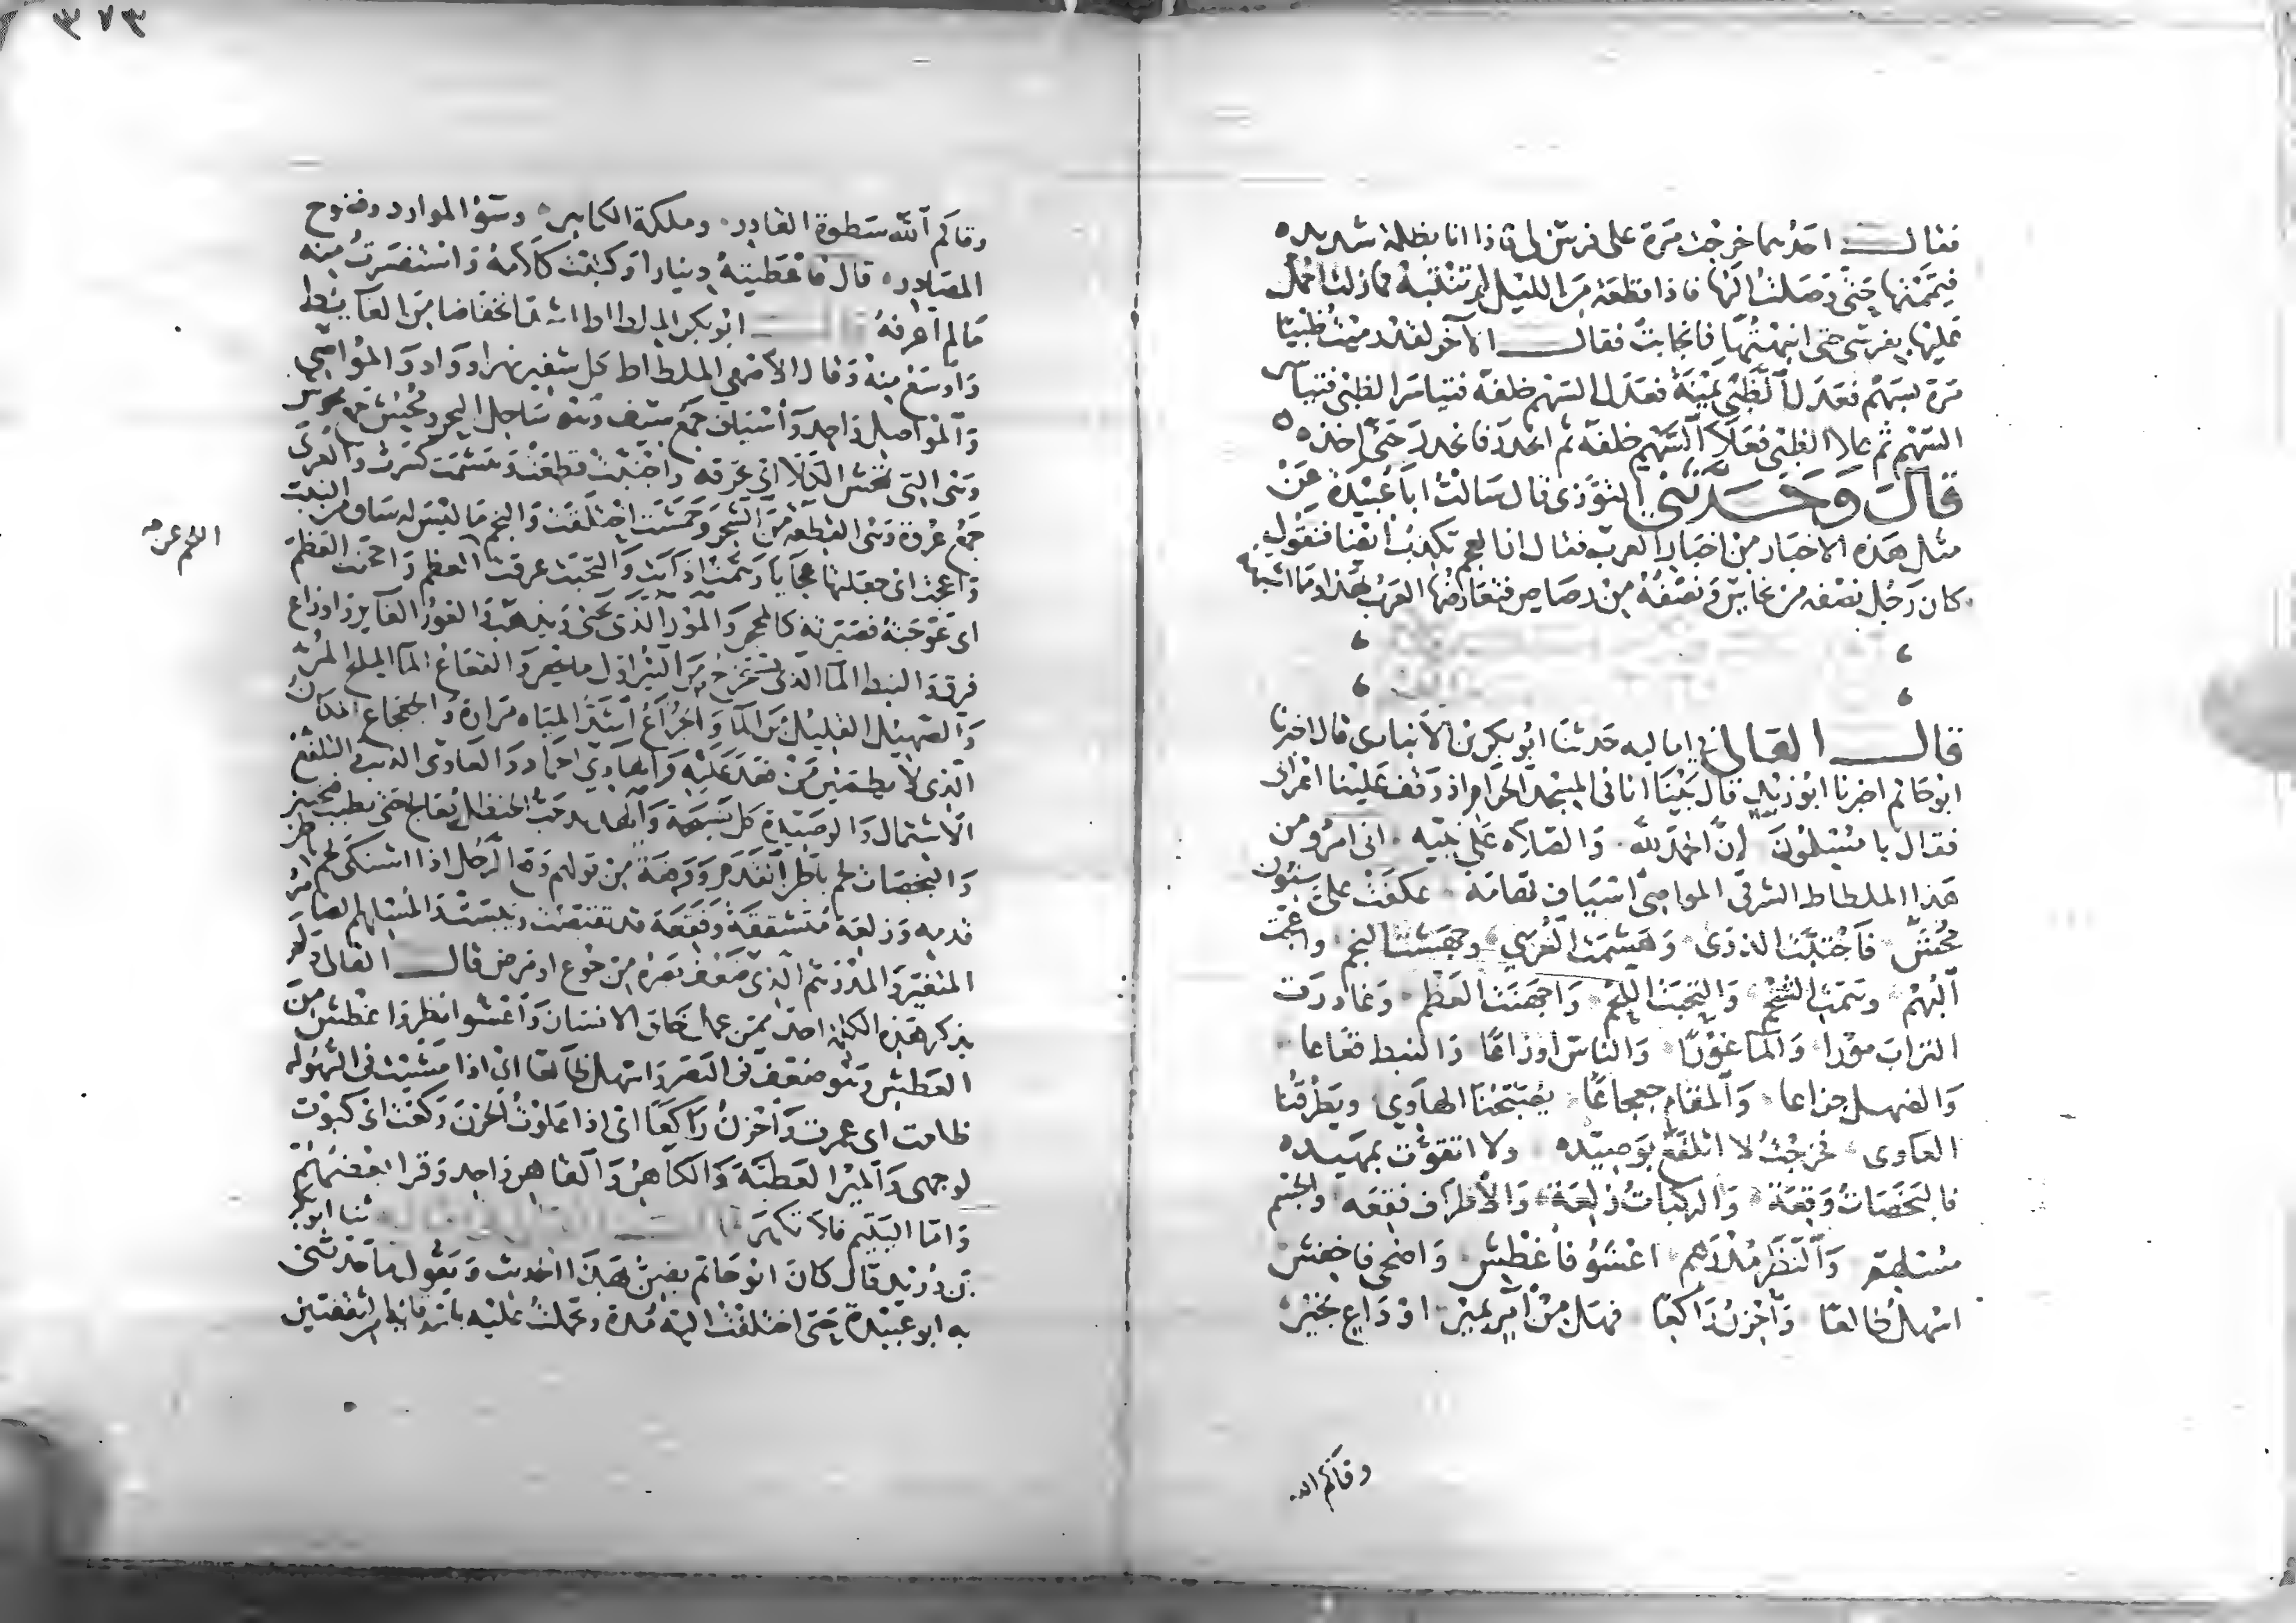 ٣٧٣
فقال احدهما خرجت مرة على فرس لى فاذا انا بظلمة شديدة
فيممتها حتى وصلت اليها فاذا قطعة من الليل لم تنتبه فما زلت احمل
عليها بفرسى حتى انبهتها فانجابت فقال الآخر لقد رميت ظبيا
مرة بسهم فعدل الظبى يمنة فعدل السهم خلفه فتياسر الظبى فتياسر
السهم ثم علا الظبى فعلا السهم خلفه ثم انحدر فانحدر حتى اخذه
قال وحدثنى التوزى قال سالت ابا عبيدة عن
مثل هذه الاخبار من اخبار العرب فقال ان العجم تكذب ايضا فتقول
كان رجل نصفه من نحاس ونصفه من رصاص فتعارضها العرب بهذا وما اشبهه
قال القالى فى اماليه حدثنا ابو بكر بن الأنبارى قال اخبرنا
ابو حاتم اخبرنا ابو زيد قال بينا انا فى المسجد الحرام اذ وقف علينا اعرابى
فقال يا مسلمون إن الحمد لله والصلاة على نبيه انى امرؤ من
هذا الملطاط الشرقى المواصى اسياف تهامة عكفت على سنون
محش فاجتبت الذرى وهشمت العرى وجمشت النجم واعجت
البهم وهمت الشحم والتحبت اللحم واحجنت العظم وغادرت
التراب مورا والماء غورا والناس اوزاعا والنبط قعاعا
والضهل جزاعا والمقام جعجاعا يصبحنا الهاوى ويطرقنا
العاوى فخرجت لا اتلفع بوصيده ولا اتقوت بمهيده
فالبخصات وقعة والركبات زلعة والأطراف فقعه والجسم
مسلهم والنظر مدرهم اعشو فاغطش واضحى فاخفش
اسهل ظالعا واحزن راكعا فهل من آمر بمير او داع بخير
وقاكم الله
وقاكم الله سطوة القادر وملكة الكاهر وسؤ الموارد وفضوح
المصادر قال فاعطيته دينارا وكتبت كلامه واستفسرت منه
مالم اعرفه قال ابو بكر الملطاط اشد انخفاضا من الغايط
واوسع منه وقال الأصمعى الملطاط كل شفير نهر او واد والمواصى
والمواصل واحد واسياف جمع سيف وهو ساحل البحر ومحش جمع محوش
وهى التى تمحش الكلأ اى تحرقه واجتبت قطعت وهشمت كسرت والعرى
جمع عروة وهى القطعة من الشجر وجمشت احتلقت والنجم ما ليس له ساق من النبت
واعجت اى جعلتها عجايا وهمت اذابت والتحبت عرقت العظم واحجنت العظم
اى عوجته فصيرته كالمحجن والمور الذى يجئ ويذهب والغور الغاير واوزاع
فرق والنبط الماء الذى يستخرج من البئر اول ما يحفر والقعاع الماء الملح المر
والضهل القليل من الماء والجزاع اشد المياه مرارة والجعجاع المكان
الذى لا يطمئن من قعد عليه والهاوى الجراد والعاوى الذئب التلفع
الاشتمال والوصيدة كل نسيجة والهبيد حب الحنظل يعالج حتى يطيب فيختبز
والبخصات لحم باطن القدم ووقعة من قولهم وقع الرجل اذا اشتكى لحم باطن
قدميه وزلعة متشققة وفقعة قد تقبضت ويبست والمسلهم الضامر
المتغير والمدرهم الذى ضعف بصره من جوع او مرض قال القالى ولم
يذكر هذه الكلمة احد ممن عمل خلق الانسان واعشو انظر واغطش من
الغطش وهو ضعف فى البصر واسهل ظالعا اى اذا مشيت فى السهولة
ظلعت اى غمزت واحزن راكعا اى اذا علوت الحزن ركعت اى كبوت
لوجهى والمير العطية والكاهر والقاهر واحد وقرا بعضهم
واما اليتيم فلا تكهر ثنا ابو بكر
بن دريد قال كان ابو حاتم يضن بهذا الحديث ويقول ما حدثنى
به ابو عبيدة حتى اختلفت اليه مدة وتحملت عليه